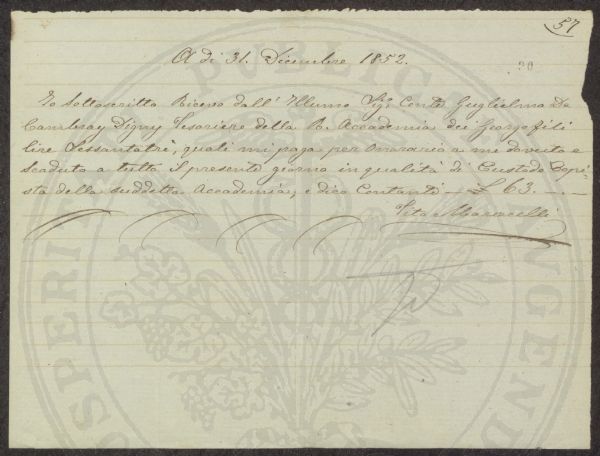 57
A dì 31. Dicembre 1852.
Io Sottoscritta Ricevo dall' Illumo Sigr. Conte Guglielmo De
Cambray Digny Tesoriere della R. Accademia dei Georgofili
lire Sessantatrè, quali mi paga per Onorario a me dovuto e
scaduto a tutto il presente giorno in qualità di Custode Depo=
sta della suddetta Accademia, e dico Contanti — £ 63. —